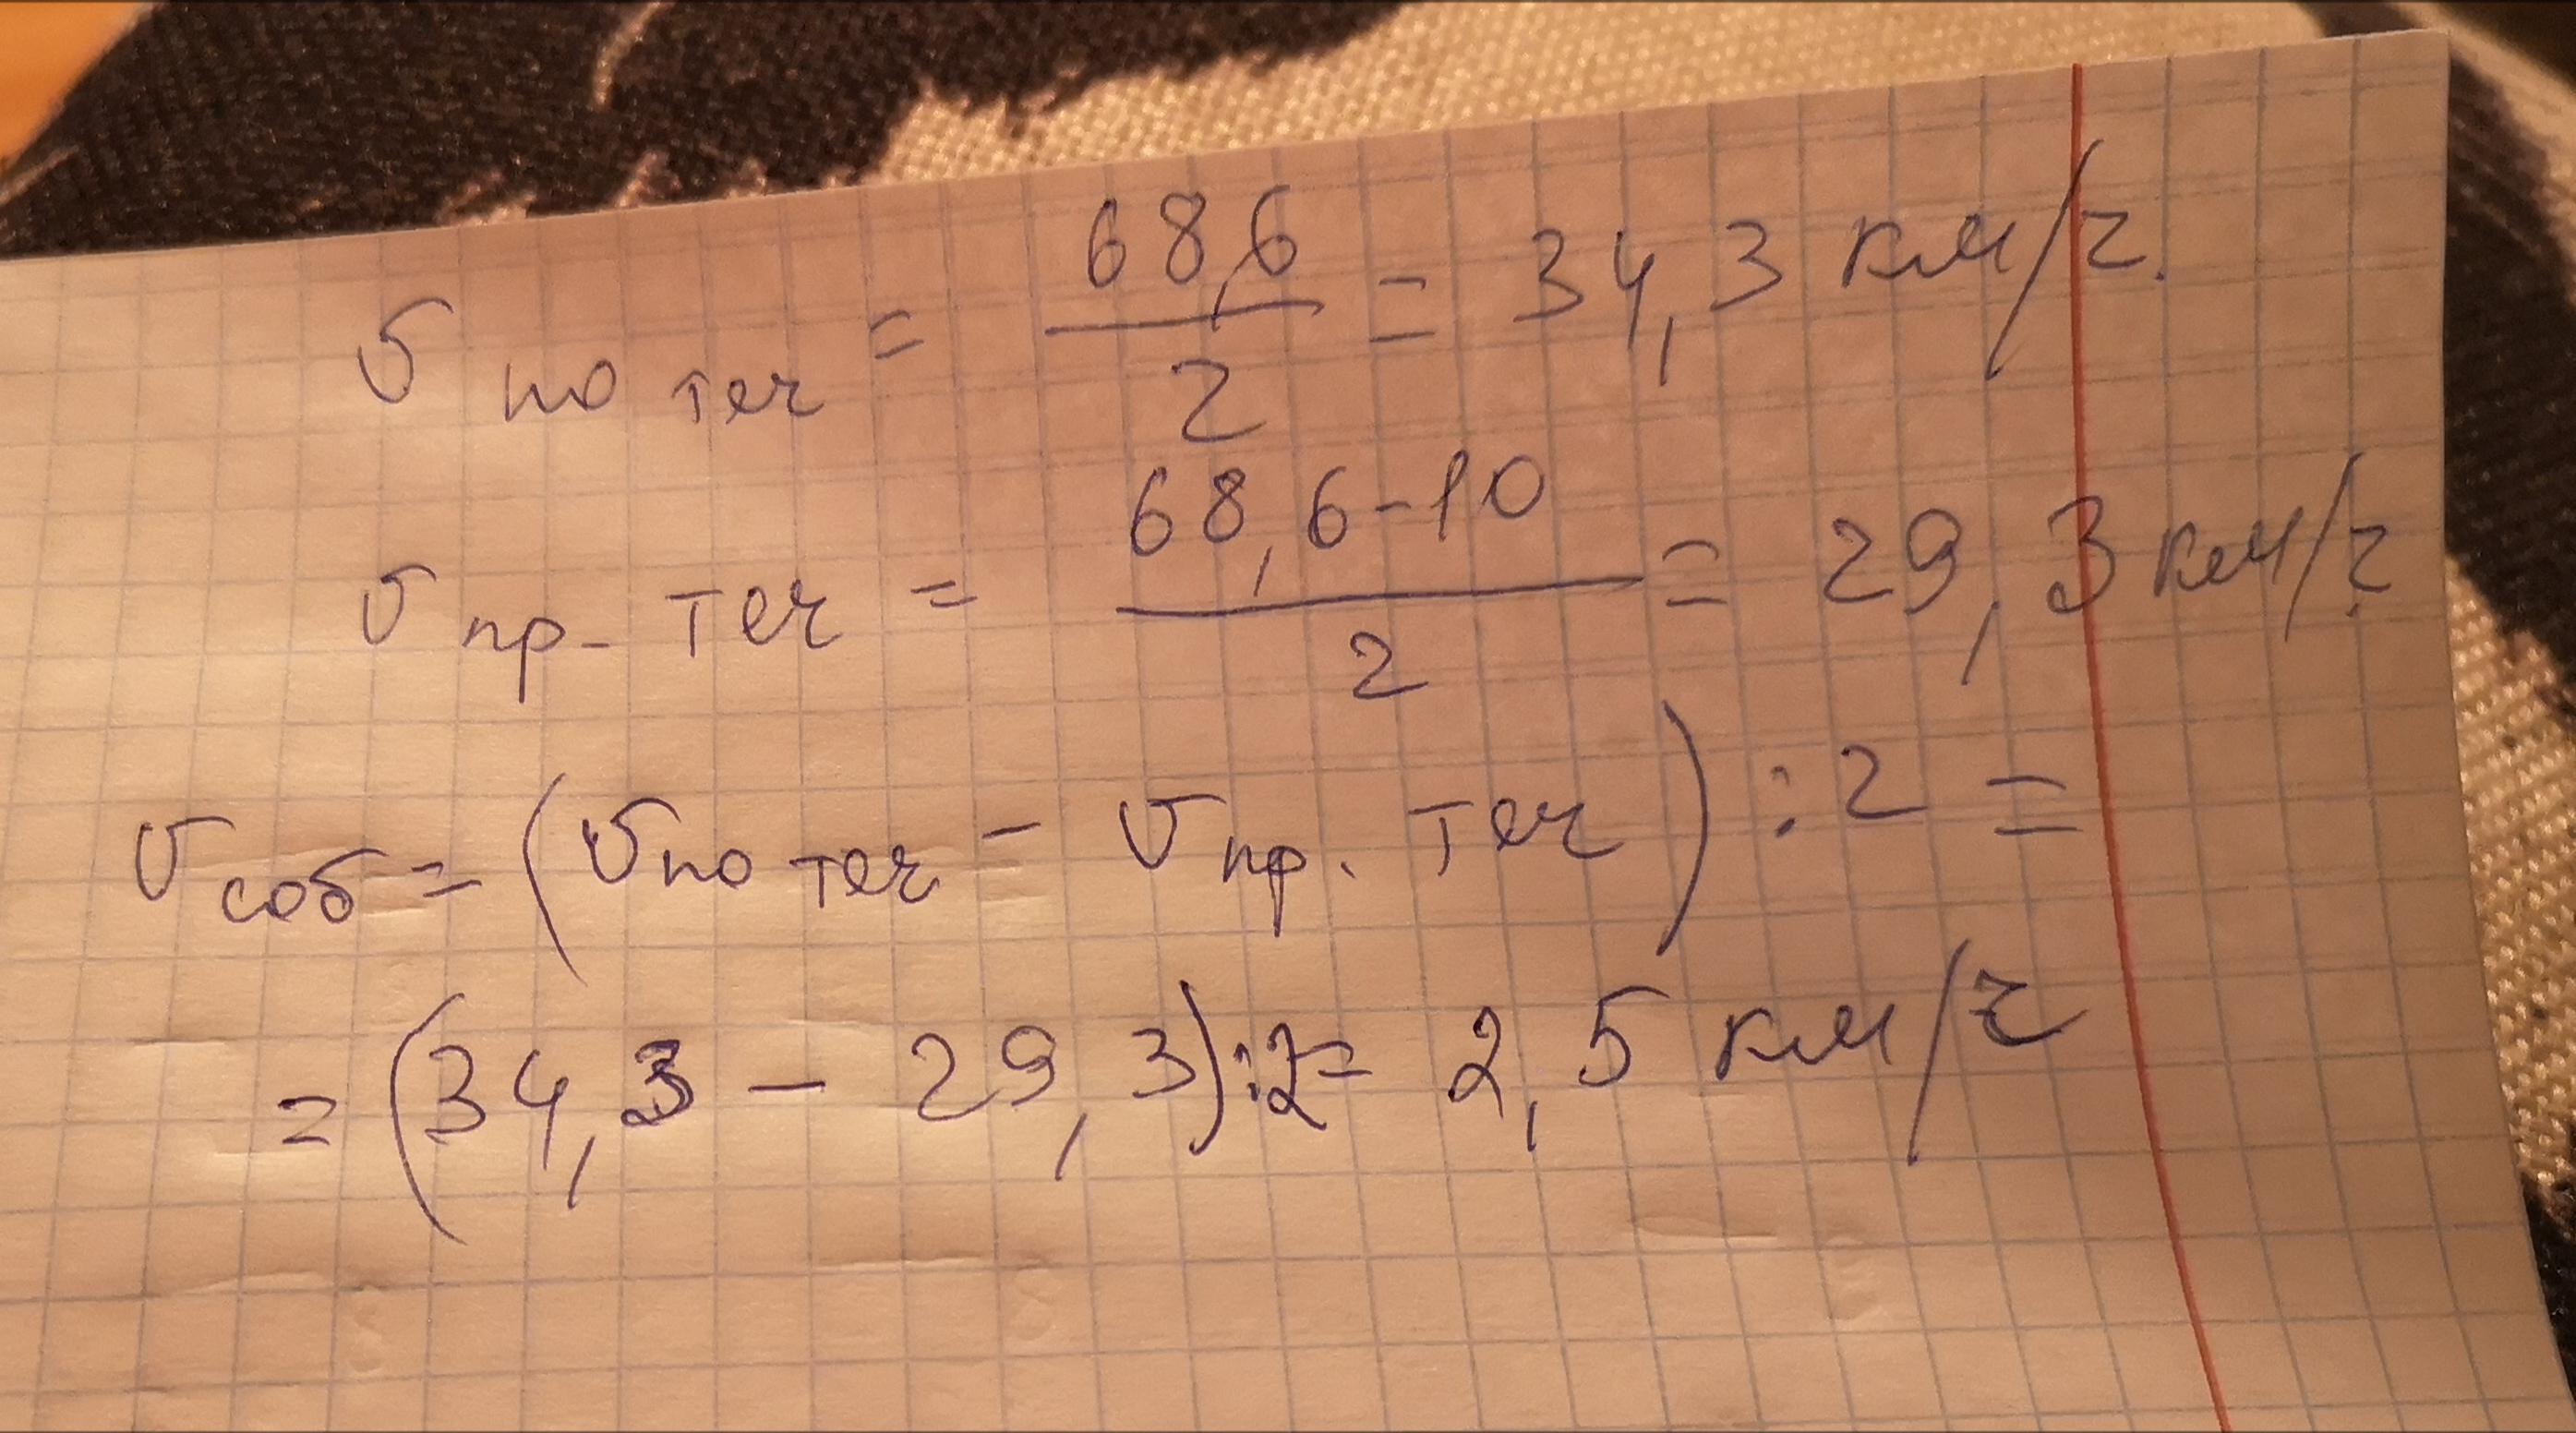 v по теч = 68,6/2 = 34,3 км/ч.
v пр. теч = 68,6-10/2 = 29,3 км/ч
v соб = (v по теч - v пр. теч) : 2 =
= (34,3 - 29,3) : 2 = 2,5 км/ч